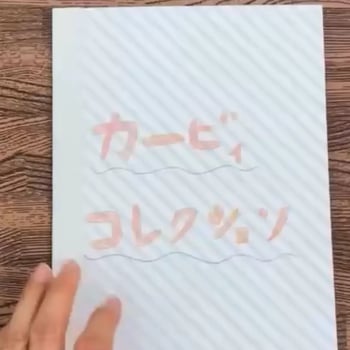 カービィ
コレクション